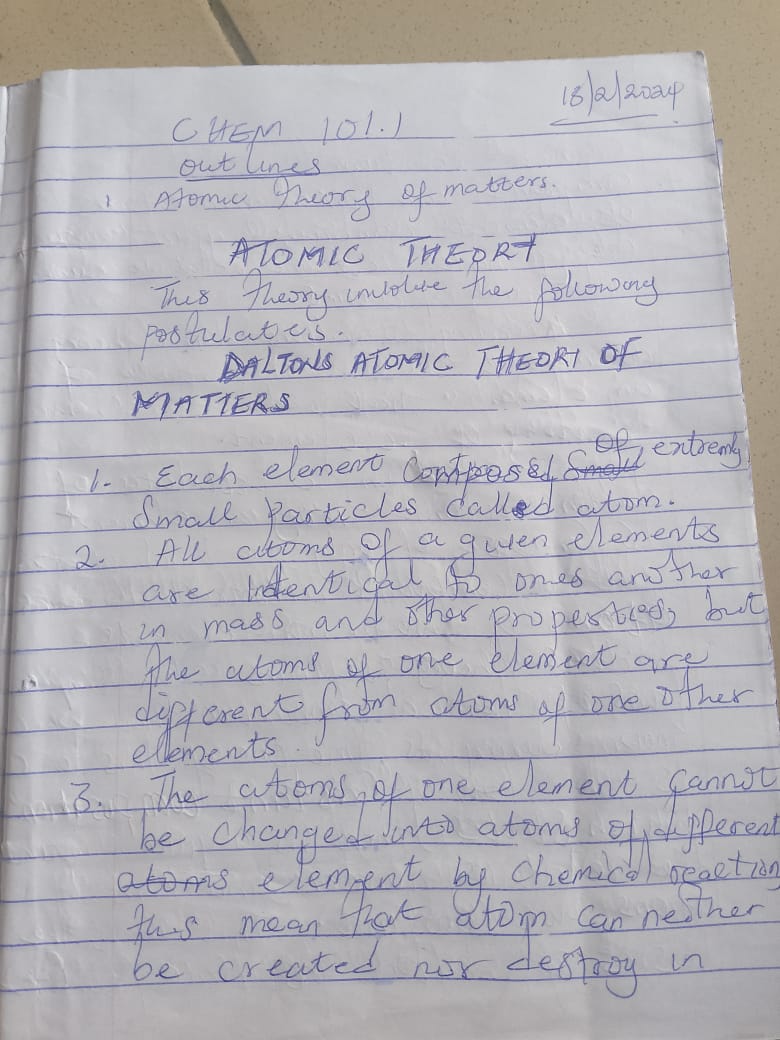 18/2/2024
CHEM 101.1
outlines
1 Atomic theory of matters.
ATOMIC THEORY
This theory involve the following
postulates.
DALTONS ATOMIC THEORY OF
MATTERS
1. Each element composed small of extremly
small particles called atom.
2. All atoms of a given elements
are Identical to ones another
in mass and other properties, but
the atoms of one element are
different from atoms of one other
elements.
3. The atoms of one element cannot
be changed into atoms of different
atoms element by chemical reaction
this mean that atom can neither
be created nor destroy in